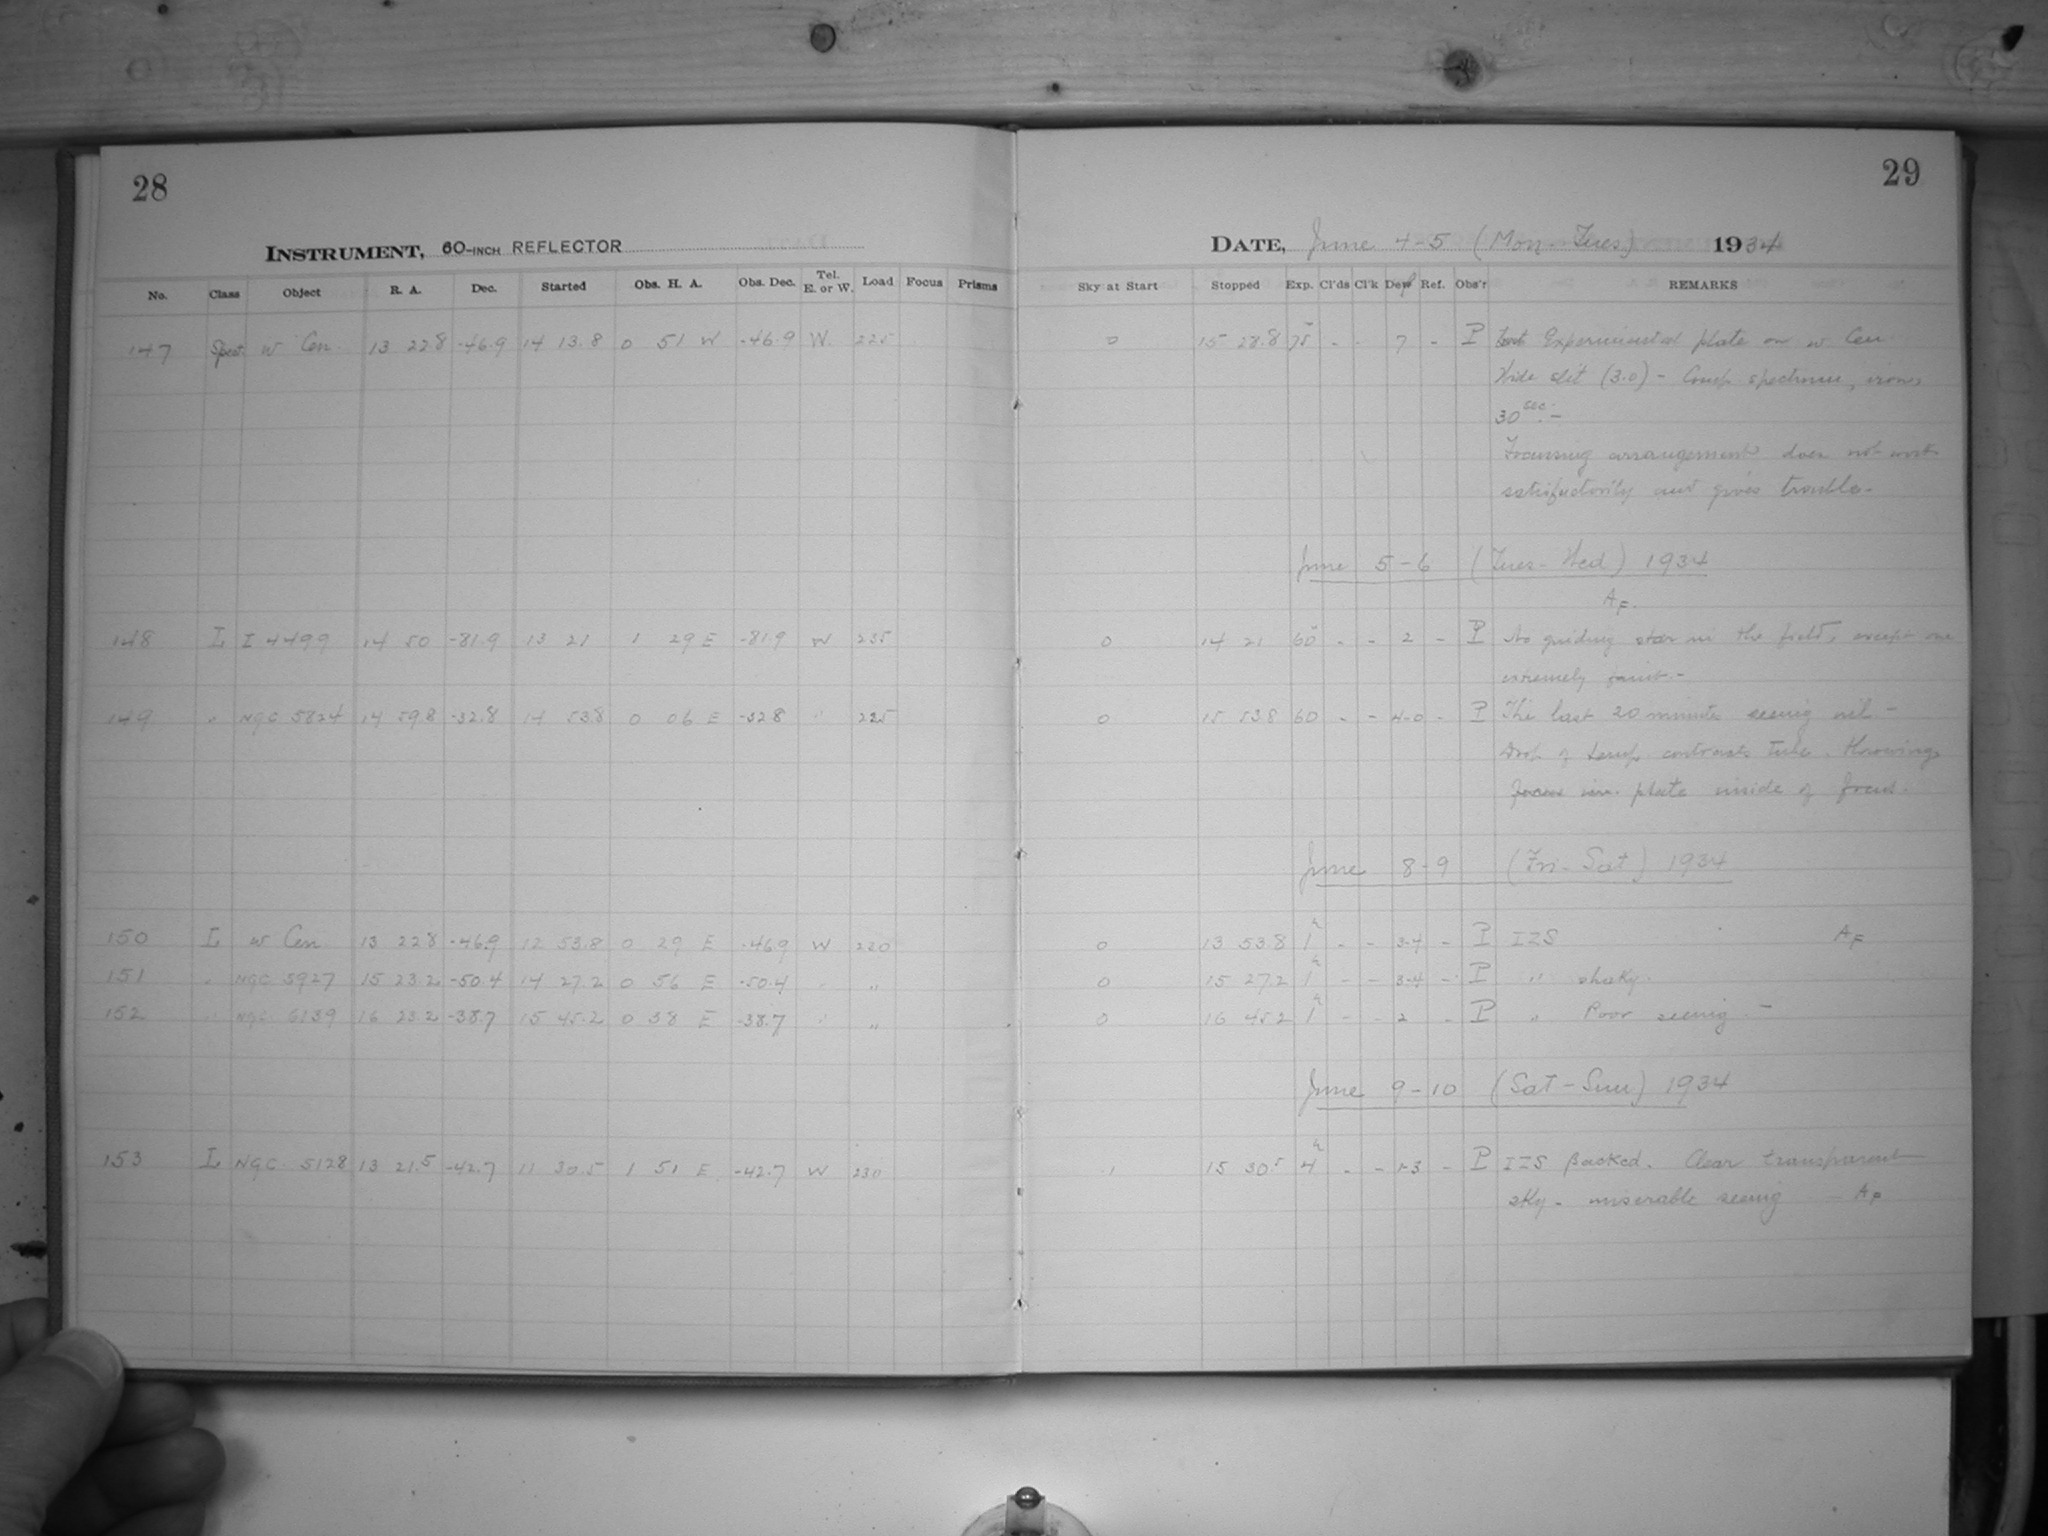 28
INSTRUMENT, 60-INCH REFLECTOR
No. Class Object R. A. Dec. Started Obs. H. A. Obs. Dec. Tel. E. or W. Load Focus Prisms
147 Spect. w Cen. 13 22.8 -46.9 14 13.8 0 51 W -46.9 W. 225
148 L I 4499 14 50 -81.9 13 21 1 29 E -81.9 W 235
149 " NGC 5824 14 59.8 -32.8 14 53.8 0 06 E -32.8 " 225
150 L w Cen 13 22.8 -46.9 12 53.8 0 29 E -46.9 W 220
151 " NGC 5927 15 23.2 -50.4 14 27.2 0 56 E -50.4 " "
152 " NGC 6139 16 23.2 -38.7 15 45.2 0 38 E -38.7 " "
153 L NGC 5128 13 21.5 -42.7 11 30.5 1 51 E -42.7 W 230
29
DATE, June 4-5 (Mon-Tues) 1934
Sky at Start Stopped Exp. Cl'ds Cl'k Def Ref. Obs'r REMARKS
0 15 28.8 75 - - 7 - P Experimental plate on w Cen
Wide slit (3.0) - Comp spectrum, iron,
30 sec. -
Focusing arrangement does not work
satisfactorily and gives trouble -
June 5-6 (Tues-Wed) 1934
AF.
0 14 21 60 - - 2 - P No guiding star in the field, except one
extremely faint. -
0 15 53.8 60 - - 4-0 - P The last 20 minutes seeing nil -
Drop of temp. contracts tube. Throwing
plate inside of focus.
June 8-9 (Fri-Sat) 1934
0 13 53.8 1h - - 3-4 - P IZS AF
0 15 27.2 1h - - 3-4 - P " shaky.
0 16 45.2 1h - - 2 - P " Poor seeing. -
June 9-10 (Sat-Sun) 1934
15 30.5 4h - - 1-3 - P IZS Backed. Clear transparent
sky - miserable seeing - AF